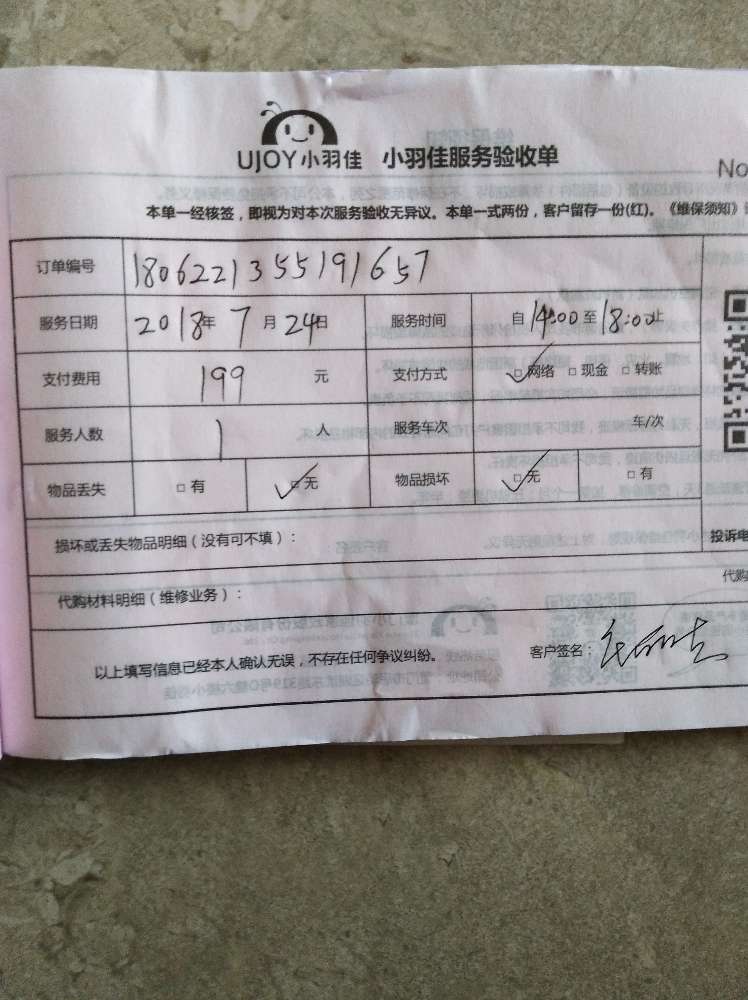 UJOY小羽佳 小羽佳服务验收单
No
本单一经核签，即视为对本次服务验收无异议。本单一式两份，客户留存一份(红)。《维保须知》
订单编号 1806221355191657
服务日期 2018年 7月 24日 服务时间 自14:00至18:00止
支付费用 199 元 支付方式 ☑网络 □现金 □转账
服务人数 1 人 服务车次 车/次
物品丢失 □有 ☑无 物品损坏 ☑无 □有
损坏或丢失物品明细（没有可不填）：
投诉电
代购材料明细（维修业务）：
代购
以上填写信息已经本人确认无误，不存在任何争议纠纷。
客户签名：